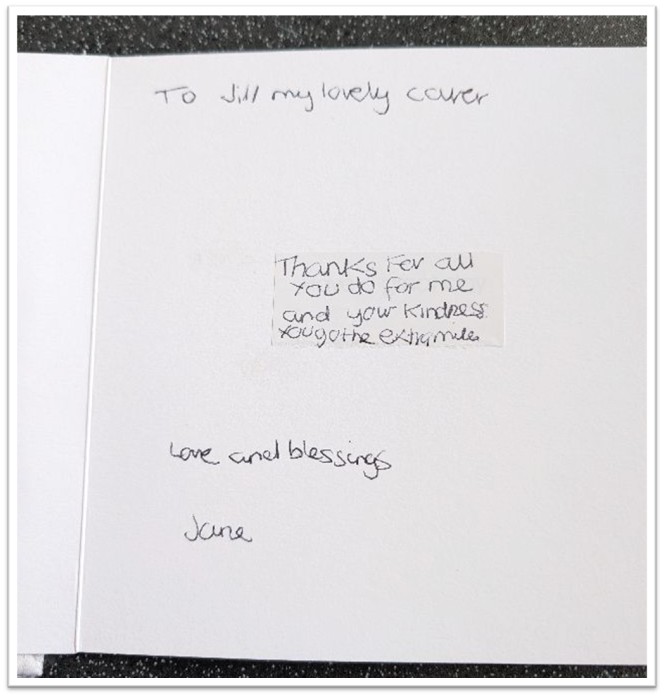 To Jill my lovely carer
Thanks For all
you do for me
and your kindness
you go the extra mile
Love and blessings
Jane